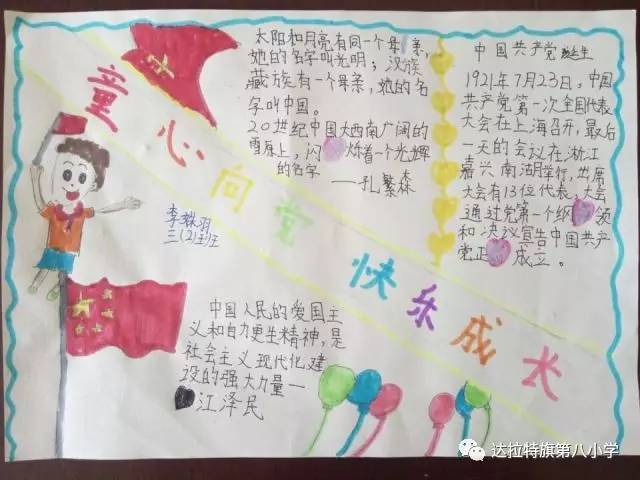 童心向党
快乐成长
太阳和月亮有同一个母亲,
她的名字叫光明;汉族
藏族有一个母亲,她的名
字叫中国。
20世纪中国大西南广阔的
雪原上,闪烁着一个光辉
的名字
——孔繁森
中国共产党诞生
1921年7月23日,中国
共产党第一次全国代表
大会在上海召开,最后
一天的会议在浙江
嘉兴南湖举行,共属
大会有13位代表、大会
通过党第一个纲领
和决议宣告中国共产
党正成立。
三(2)班
中国人民的爱国主
义和自力更生精神,是
社会主义现代化建
设的强大力量一
江泽民
达拉特旗第八小学